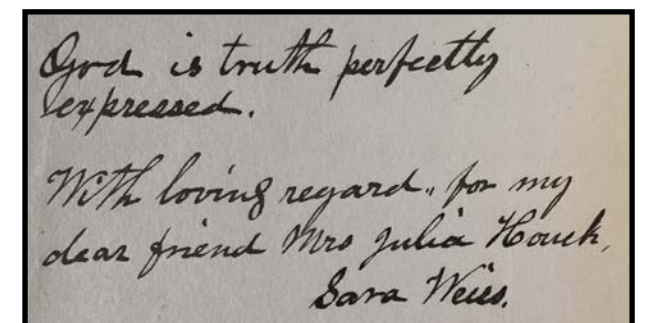 God is truth perfectly
expressed.
With loving regard, for my
dear friend Mrs Julia Houck,
Sara Weiss.